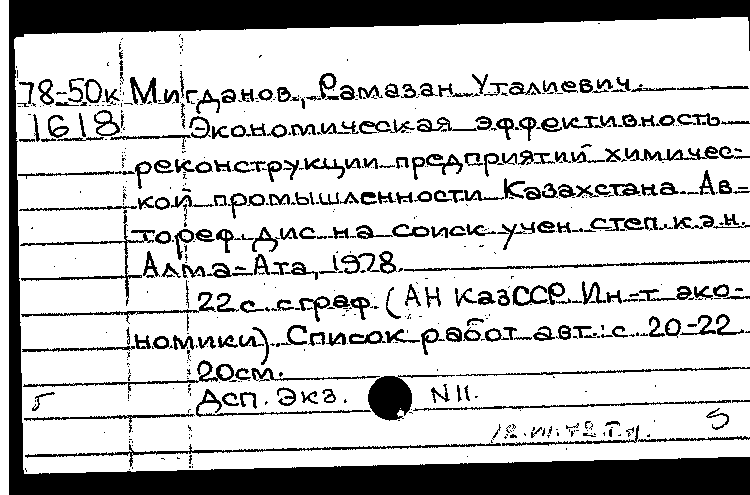 78-50к Мигданов, Рамазан Уталиевич.
1618 Экономическая эффективность
реконструкции предприятий химичес-
кой промышленности Казахстана. Ав-
тореф. дис. на соиск. учен. степ. к.э.н.
Алма-Ата, 1978.
22 с. с граф. (АН КазССР. Ин-т эко-
номики). Список работ авт.: с. 20-22
20см.
Дсп. Экз. N11.